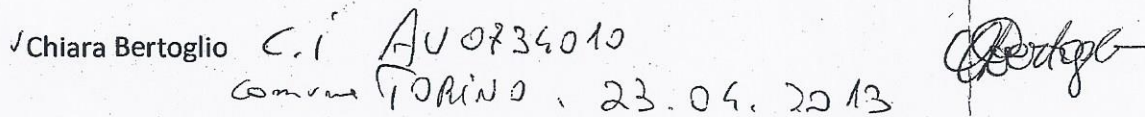 ✓Chiara Bertoglio C.i AU0734010
comune TORINO. 23.04.2013